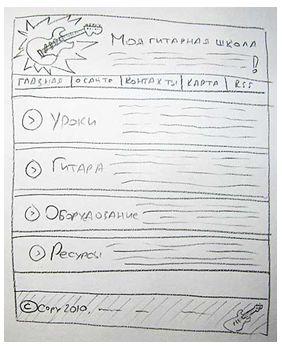 Моя гитарная школа
!
Главная | О сайте | Контакты | Карта | RSS
> Уроки
> Гитара
> Оборудование
> Ресурсы
© Copy 2010.